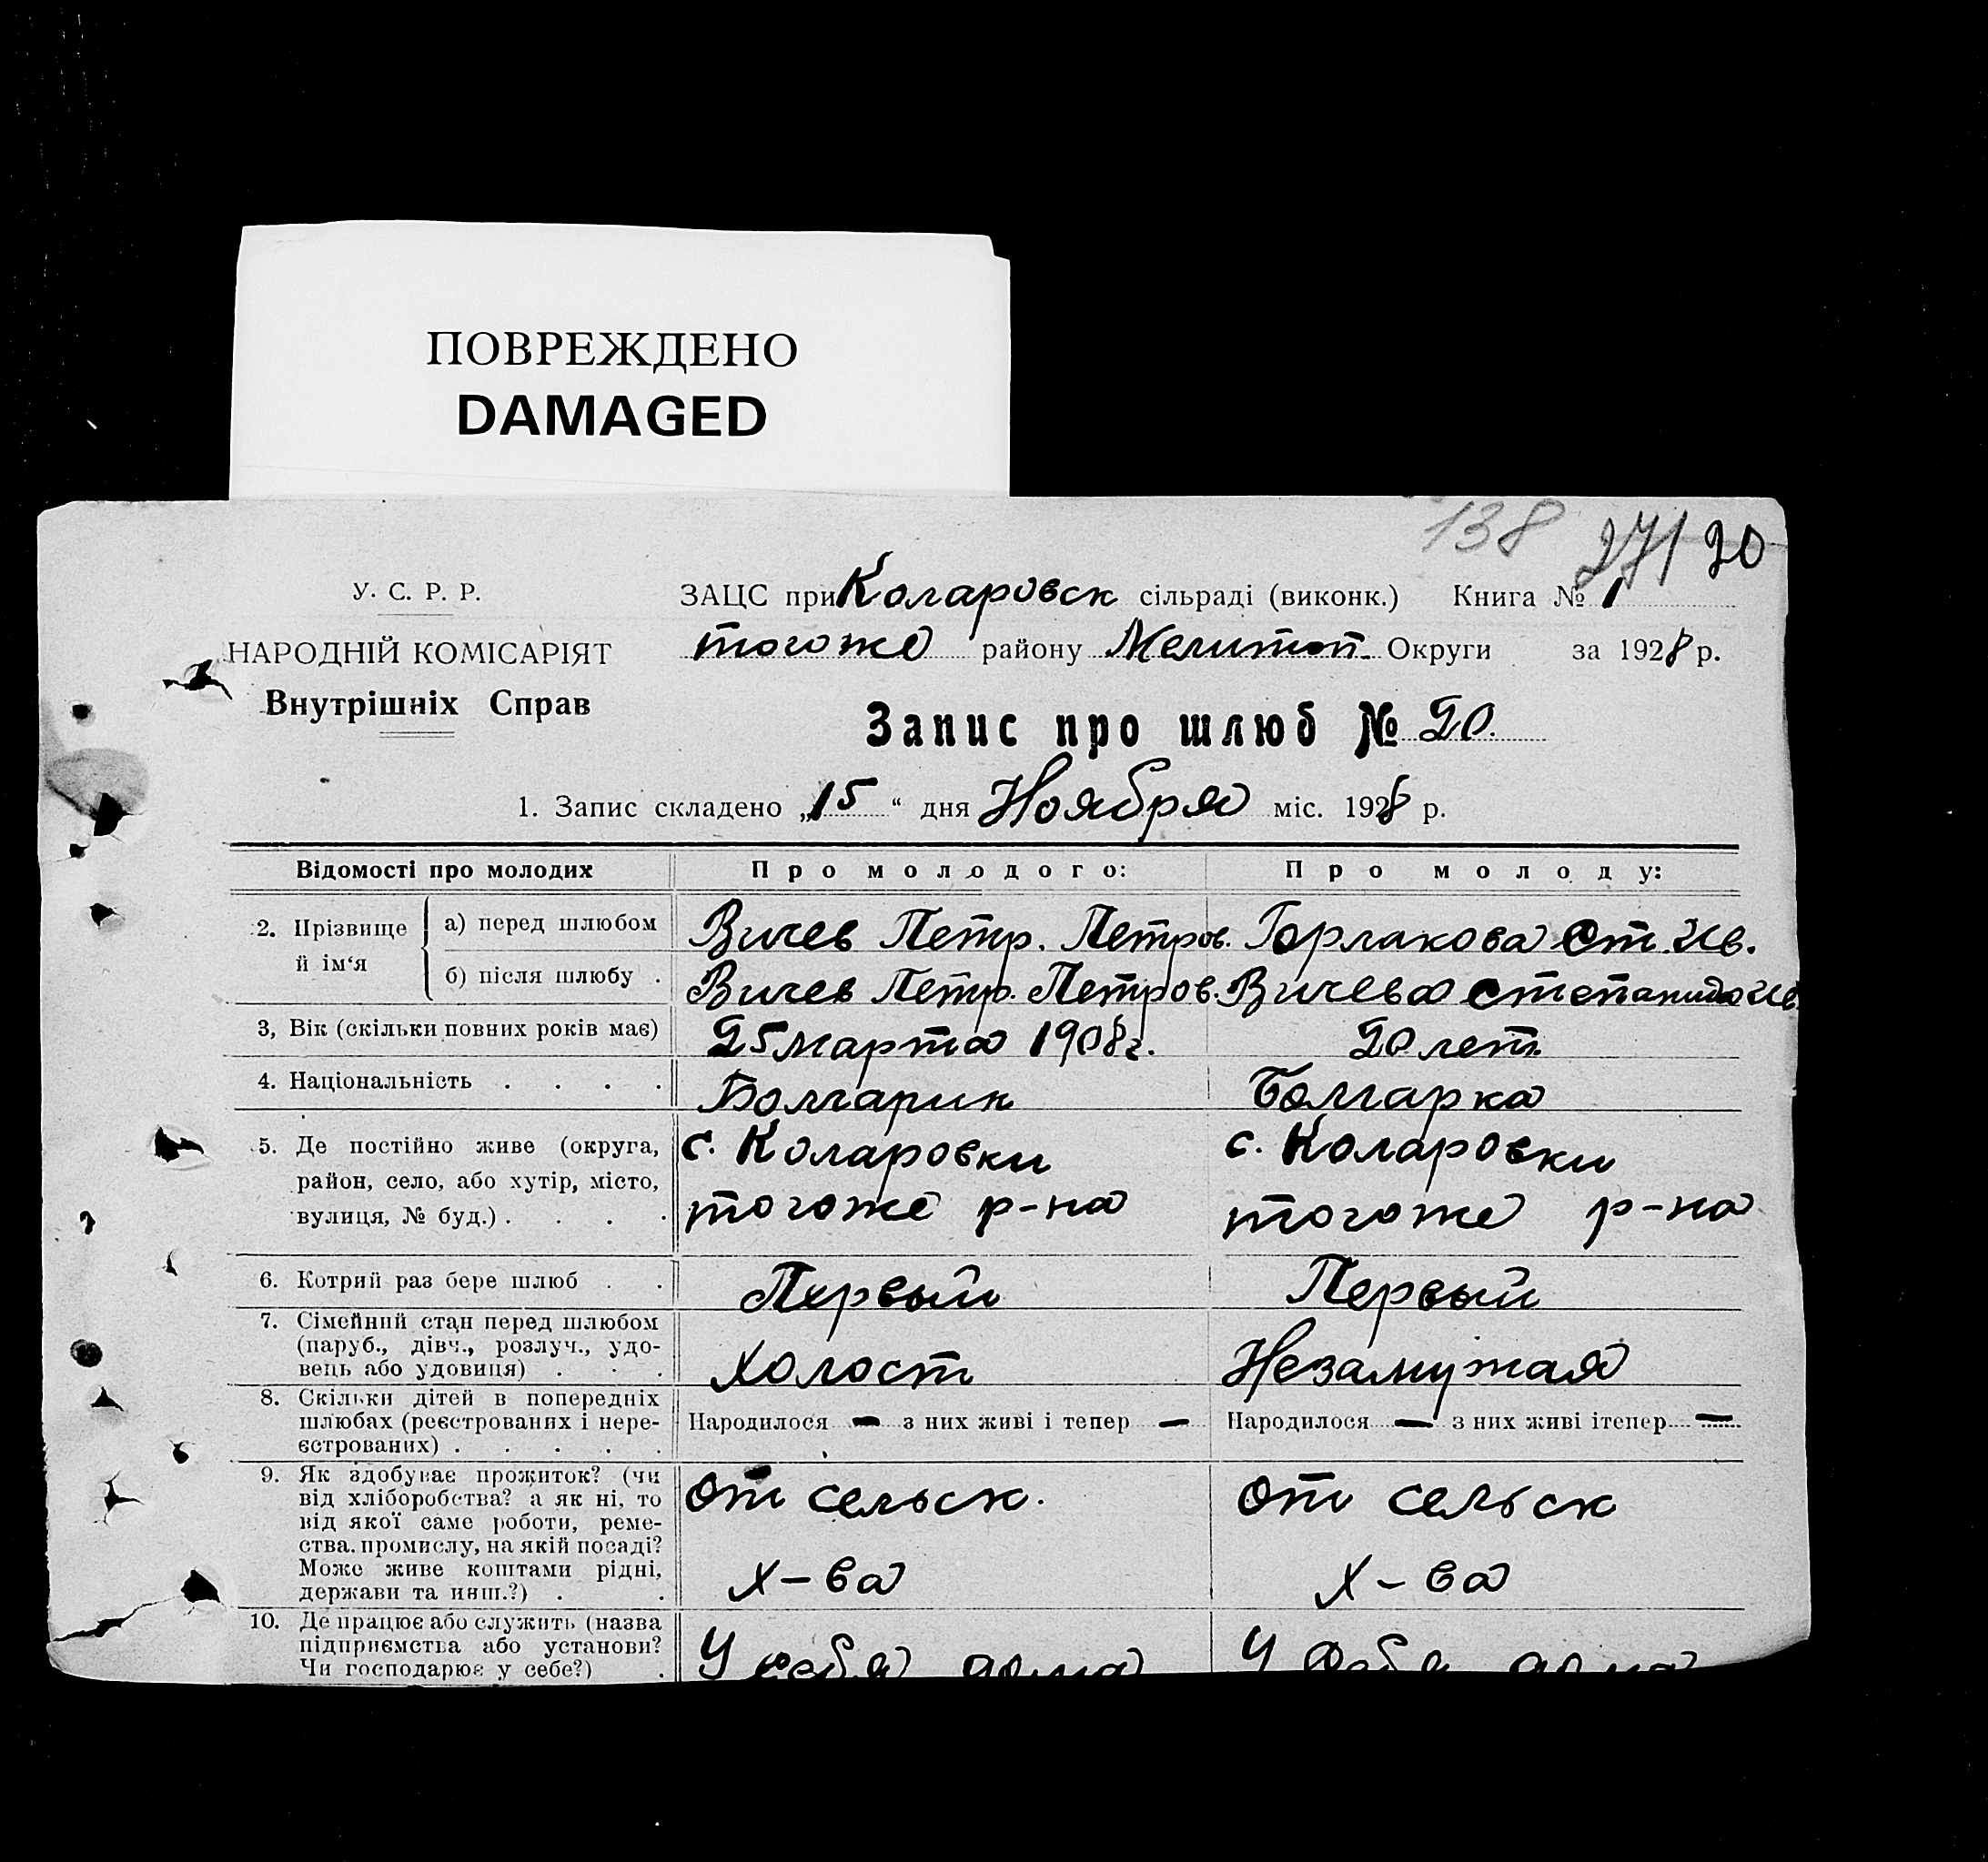 ПОВРЕЖДЕНО
DAMAGED
138 27/20
У. С. Р. Р.
НАРОДНІЙ КОМІСАРІЯТ
Внутрішніх Справ
ЗАЦС при Коларовск сільраді (виконк.) Книга № 1
тогоже району Мелитоп. Округи за 1928 р.
Запис про шлюб № 20.
1. Запис складено „15“ дня Ноября міс. 1928 р.
Відомості про молодих Про молодого: Про молоду:
2. Прізвище й ім‘я а) перед шлюбом Вичев Петр. Петров. Горлакова Ст. Ив.
б) після шлюбу . Вичев Петр. Петров. Вичева Степанида Ив.
3, Вік (скільки повних років має) 25 марта 1908 г. 20 лет.
4. Національність . . . . Болгарин Болгарка
5. Де постійно живе (округа, с. Коларовки с. Коларовки
район, село, або хутір, місто,
вулиця, № буд.) . . . . тогоже р-на тогоже р-на
6. Котрий раз бере шлюб . . Первый Первый
7. Сімейний стан перед шлюбом
(паруб., дівч., розлуч., удо-
вець або удовиця) . . . Холост Незамужая
8. Скільки дітей в попередніх
шлюбах (реєстрованих і нере- Народилося — з них живі і тепер — Народилося — з них живі ітепер —
єстрованих) . . . . .
9. Як здобуває прожиток? (чи
від хліборобства? а як ні, то От сельск. От сельск
від якої саме роботи, реме-
ства, промислу, на якій посаді?
Може живе коштами рідні, х-ва х-ва
держави та инш.?) . .
10. Де працює або служить (назва
підприємства або установи? У себя дома У себя дома
Чи господарює у себе?) .